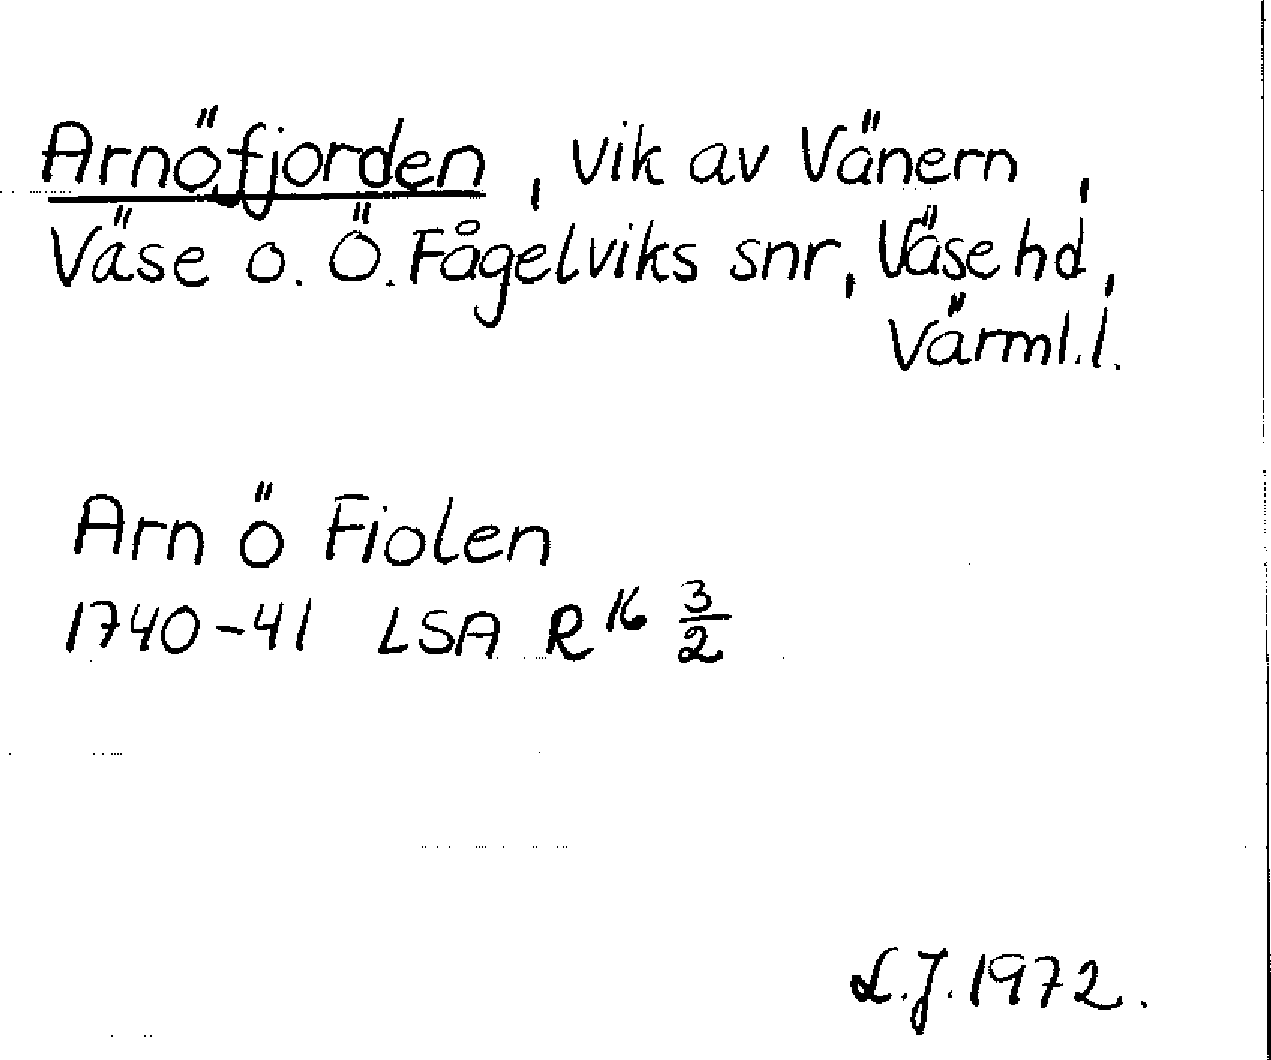 Arnöfjorden, vik av Vänern,
Väse o. Ö. Fågelviks snr, Väse hd,
Värml. l.
Arn ö Fiolen
1740-41 LSA R 16 3/2
L.J. 1972.